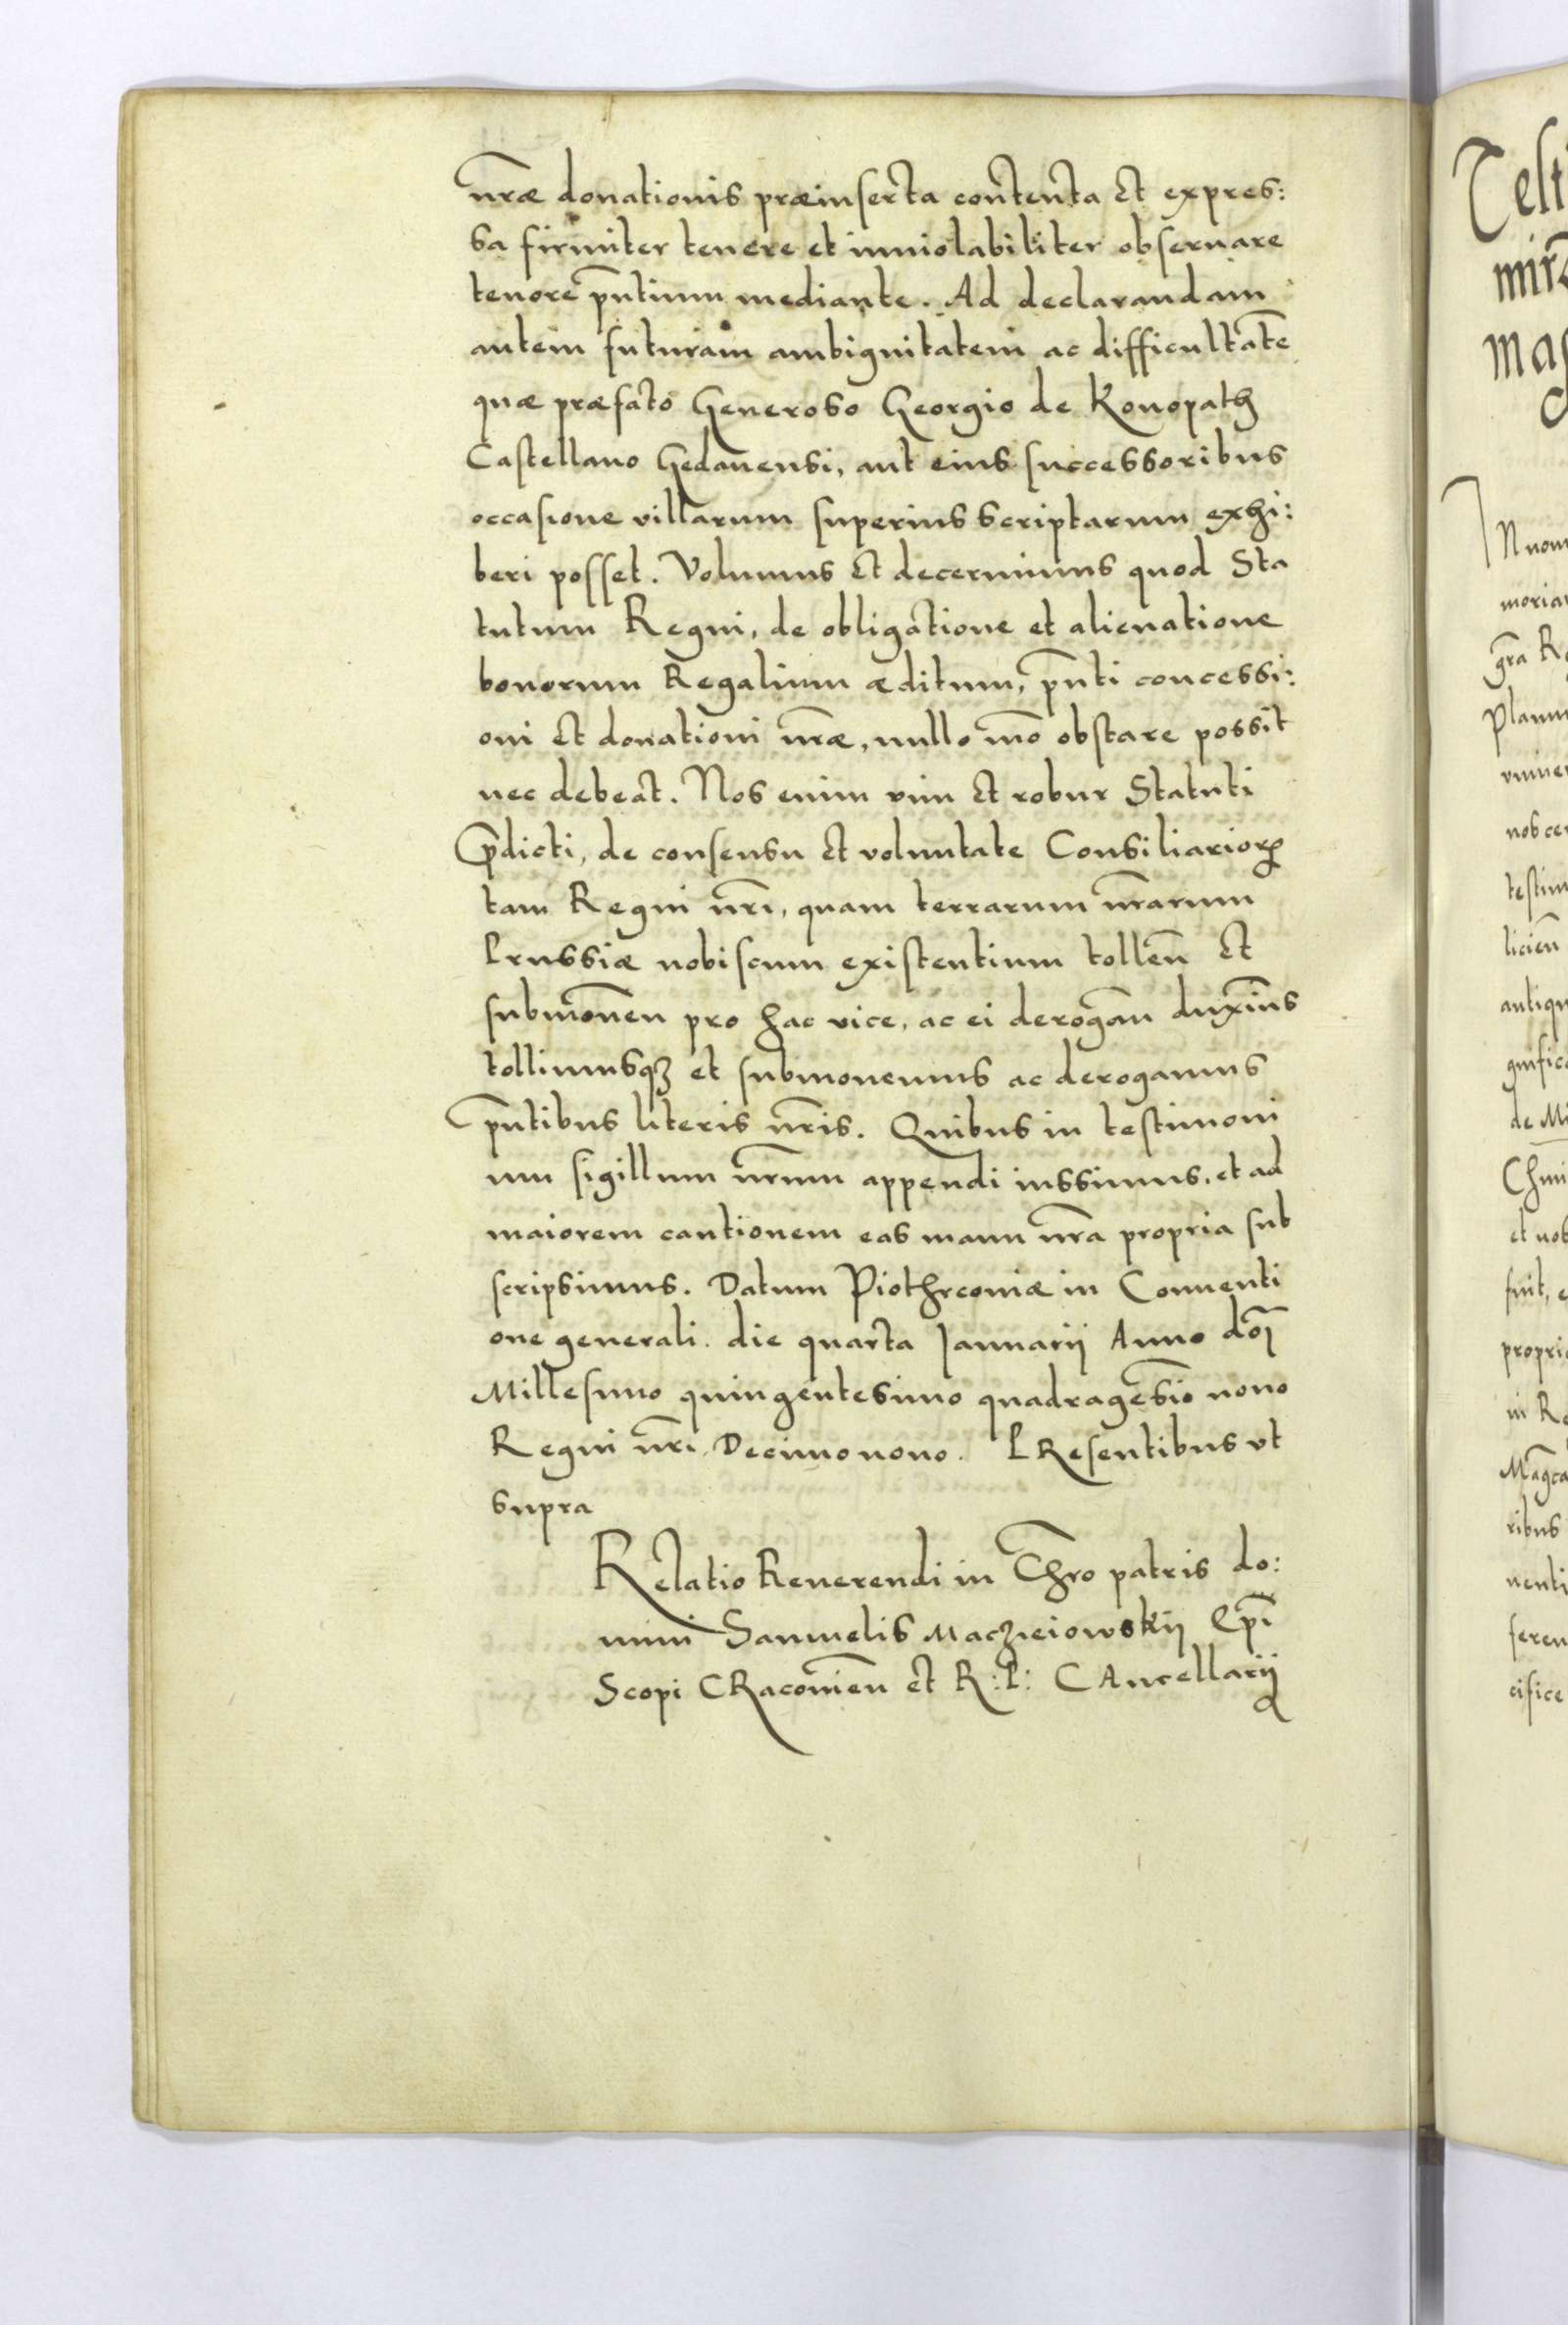 nr̄æ donationis præinserta contenta et expres:
sa firmiter tenere et inuiolabiliter obseruare
tenore p̄ntium mediante. Ad declarandam
autem futuram ambiguitatem ac difficultatē
quæ præfato Generoso Georgio de Konopath
Castellano Gedanensi, aut eius successoribus
occasione villarum superius scriptarum exhi:
beri posset. Volumus et decernimus quod Sta
tutum Regni, de obligatione et alienatione
bonorum Regalium æditum, p̄nti concessi:
oni et donationi nr̄æ, nullo mō obstare possit
nec debeat. Nos enim vim et robur Statuti
p̄dicti, de consensu et voluntate Consiliarioꝝ
tam Regni nr̄i, quam terrarum nr̄arum
Prussiæ nobiscum existentium tolleñ et
submoneñ pro hac vice, ac ei derogañ duximꝰs
tollimusqꝫ et submonemus ac derogamus
p̄ntibus literis nr̄is. Quibus in testimoni
um sigillum nr̄um appendi iussimus, et ad
maiorem cautionem eas manu nr̄a propria sub
scripsimus. Datum Piothrcouiæ in Conuenti
one generali. die quarta Januarij Anno dōi
Millesimo quingentesimo quadragesīo nono
Regni nr̄i Decimonono. PResentibus vt
supra
Relatio Reuerendi in Chr̄o patris do:
mini Samuelis Maczieiowskij Ep̄i
Scopi CRacouieñ et R: P: CAncellarij
Telt
mir̄
mag
IN nom
moriam
gr̄a Re
Planum
vniuer
nob cer
testim
licieñ
antiqu
gnifice
de Mi
Chmi
et nob
fuit, e
propria
in Re
Mag̃ca
ribus
uenti
feren
cifice